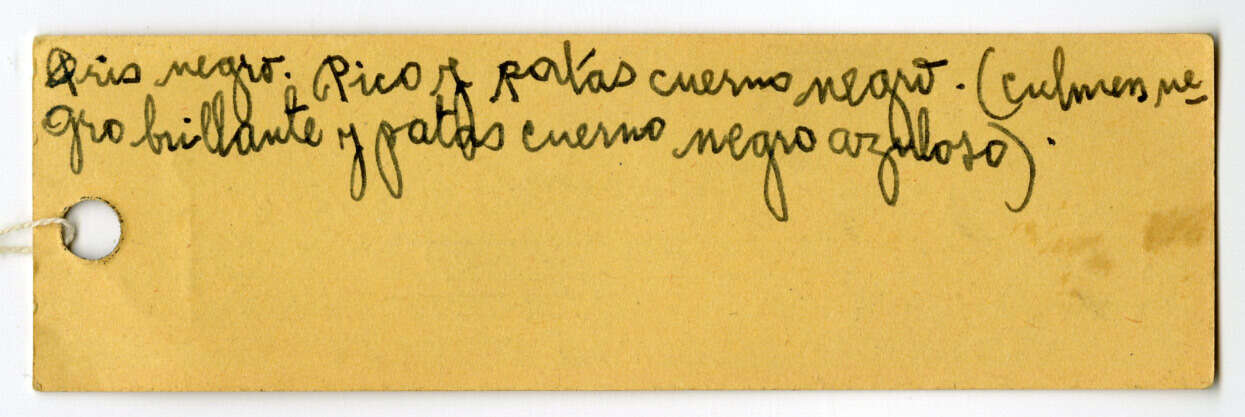 Iris negro. Pico y patas cuerno negro. (culmen ne-
gro brillante y patas cuerno negro azuloso).